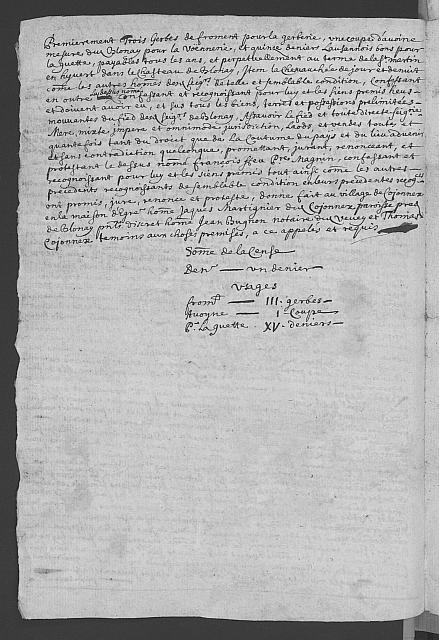 Premierement Trois Gerbes de froment pour la gerberie, une coupe d'avoine
mesure dud Blonay pour la Voennerie, et quinze deniers Lausannois bons pour
la guette, payables tous les ans, et perpetuellement au terme de la St martin
en hyvert dans le chasteau de Blonay, Item la Chevauchée de jour et de nuit
come les autres homes desd Seigrs de telle et semblable condition, Confessant
en outre led dessus nomé Confessant et recognoissant pour luy et les siens premis heus
et doivent avoir eu, et sus tous les biens, terres et possessions prelimitées
mouventes du fied desd Seigrs de Blonay, Assavoir le fied et toute directe seigrie
Mere, mixte, impere et omnimode jurisdiction, Laods et vendes toutes et
quantefois tant du droict que de La Coutume du pays et du lieu advient
et sans contradiction quelconque, promettant, jurant, renonceant, et
protestant le dessus nomé françois feu Pre Magnin, confessant et
recognoissant pour luy et les siens premis tout ainsi come les autres
precedents recognoissants de semblable condition en leurs precedentes recogces
ont promis, juré, renoncé et protesté, donné fait au village de Cojonnex
en la maison d'Egre home Jaques Martignier du Cojonnex paroisse
de Blonay pnts discret home Jean Bugnon notaire de Vevey et Thomas
Cojonnex temoins aux choses premises, a ce appelés et requis
Some de la Cense
Denr — un denier
Usages
fromt — III. gerbes —
Avoyne — I. Coupe
Pr La guette . XV. deniers —